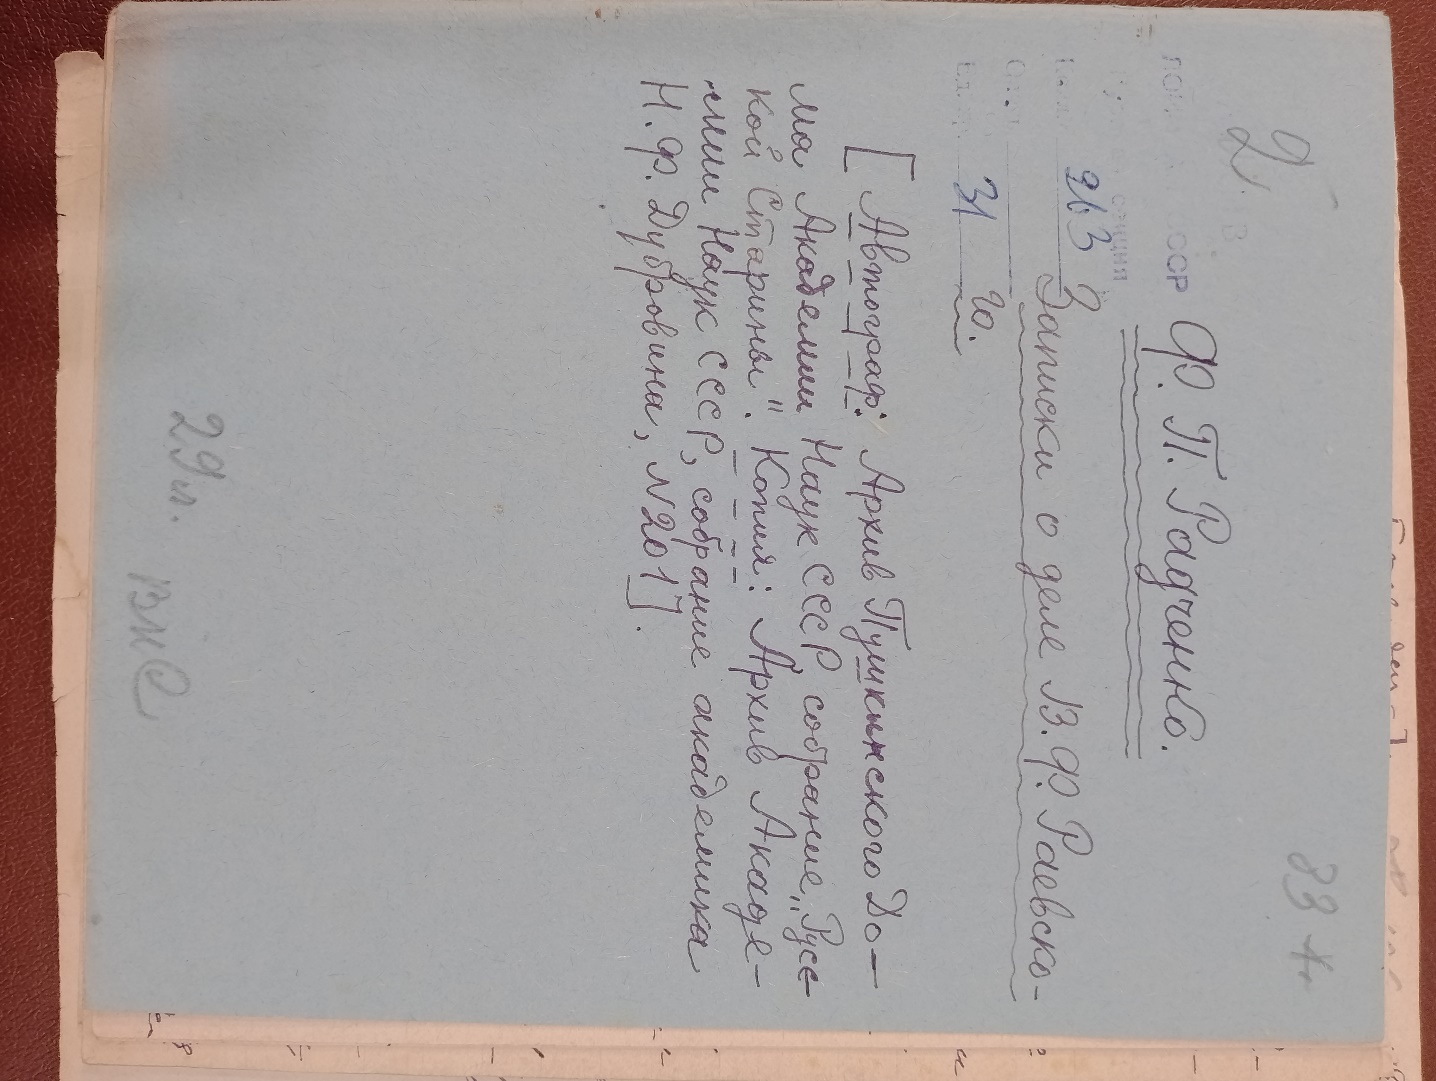 2
83
СССР
секция
263
31
Ф. П. Радченко.
Записки о деле В. Ф. Раевско-
го.
[Автограф: Архив Пушкинского До-
ма Академии Наук СССР, собрание „Русс-
кой Старины". Копия: Архив Акаде-
мии Наук СССР, собрание академика
Н. Ф. Дубровина, №201].
29 л.